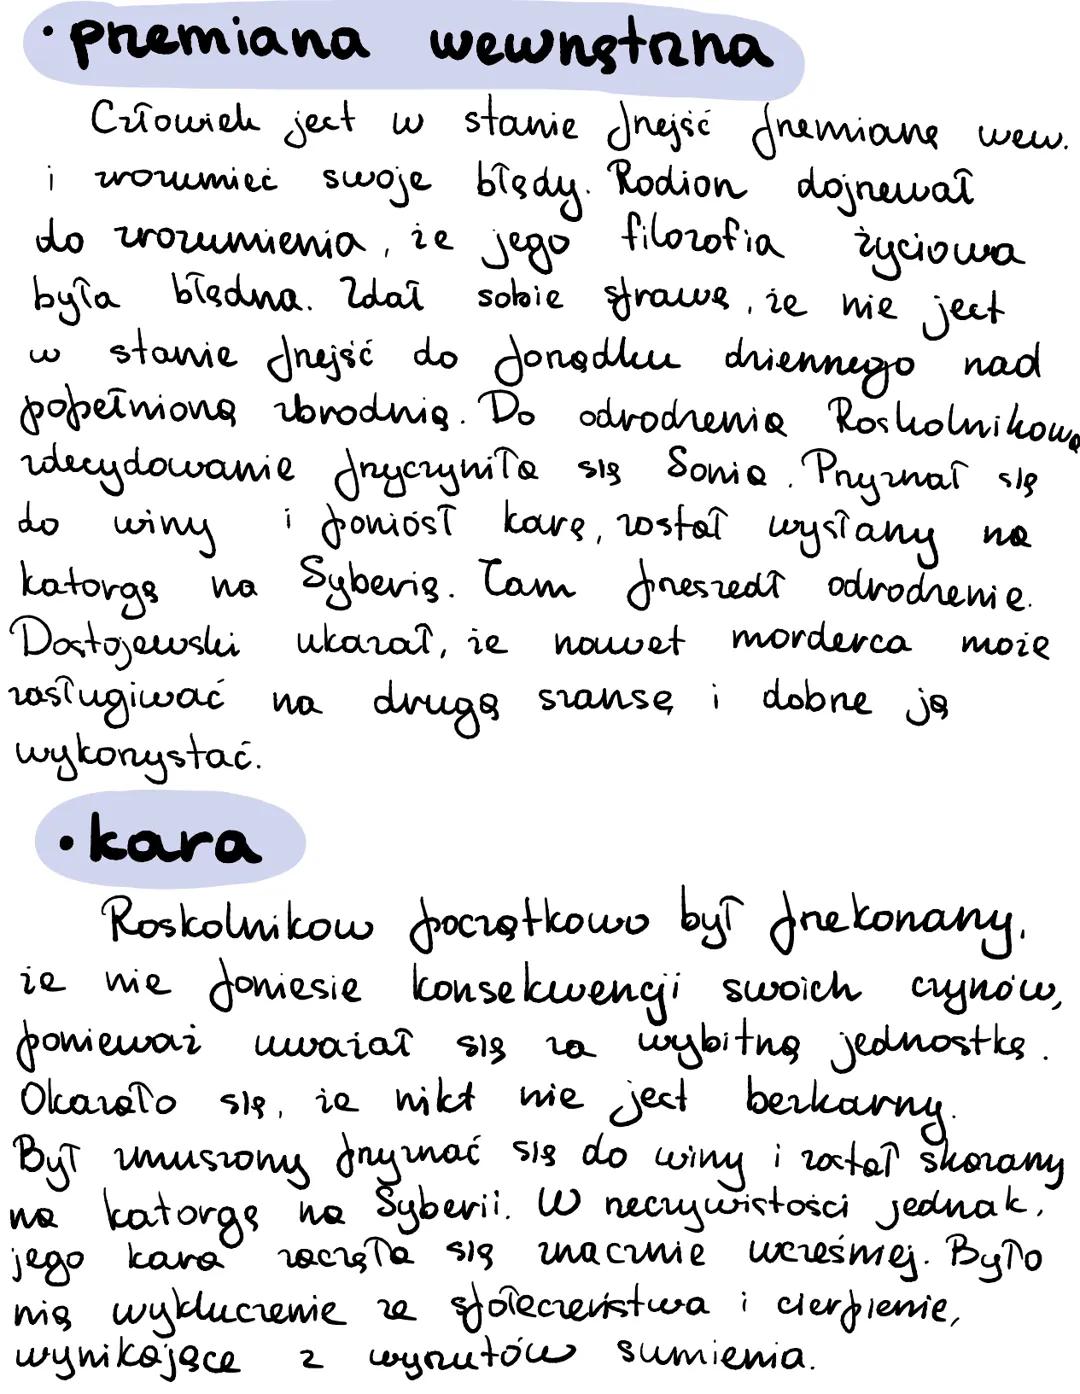 • przemiana wewnętrzna
Człowiek jest w stanie przejść przemianę wew.
i zrozumieć swoje błędy. Rodion dojrzewał
do zrozumienia, że jego filozofia życiowa
była błędna. Zdał sobie sprawę, że nie jest
w stanie przejść do porządku dziennego nad
popełnioną zbrodnią. Do odrodzenia Raskolnikowa
zdecydowanie przyczyniła się Sonia. Przyznał się
do winy i poniósł karę, został wysłany na
katorgę na Syberię. Tam przeszedł odrodzenie.
Dostojewski ukazał, że nawet morderca może
zasługiwać na drugą szansę i dobrze ją
wykorzystać.
• kara
Raskolnikow początkowo był przekonany,
że nie poniesie konsekwencji swoich czynów,
ponieważ uważał się za wybitną jednostkę.
Okazało się, że nikt nie jest bezkarny.
Był zmuszony przyznać się do winy i został skazany
na katorgę na Syberii. W rzeczywistości jednak,
jego kara zaczęła się znacznie wcześniej. Było
nią wykluczenie ze społeczeństwa i cierpienie,
wynikające z wyrzutów sumienia.